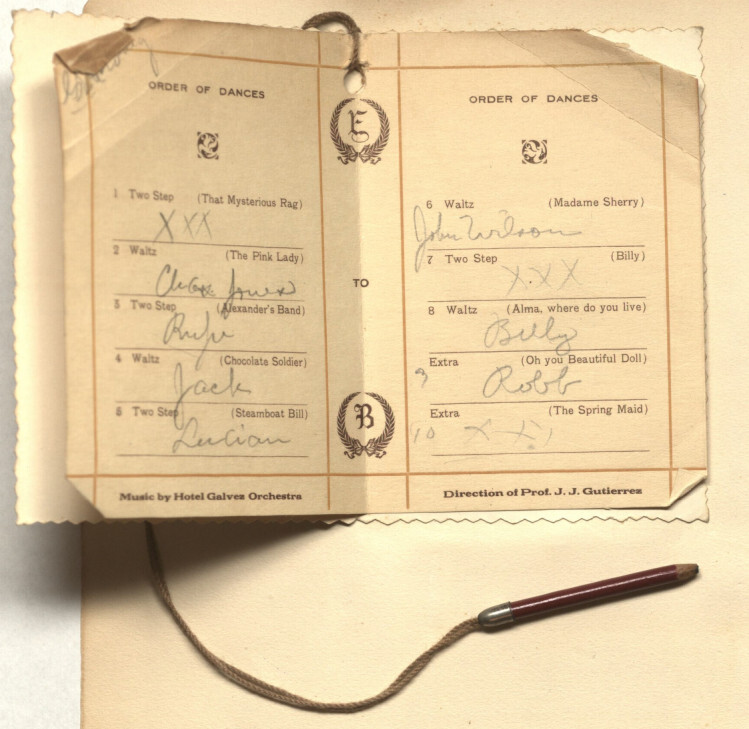 ORDER OF DANCES
1 Two Step (That Mysterious Rag)
XXX
2 Waltz (The Pink Lady)
Jones
3 Two Step (Alexander's Band)
Rufe
4 Waltz (Chocolate Soldier)
Jack
5 Two Step (Steamboat Bill)
Lucian
Music by Hotel Galvez Orchestra
E
TO
B
ORDER OF DANCES
6 Waltz (Madame Sherry)
John Wilson
7 Two Step (Billy)
XXX
8 Waltz (Alma, where do you live)
Billy
Extra (Oh you Beautiful Doll)
9 Robb
Extra (The Spring Maid)
10 X-X
Direction of Prof. J. J. Gutierrez